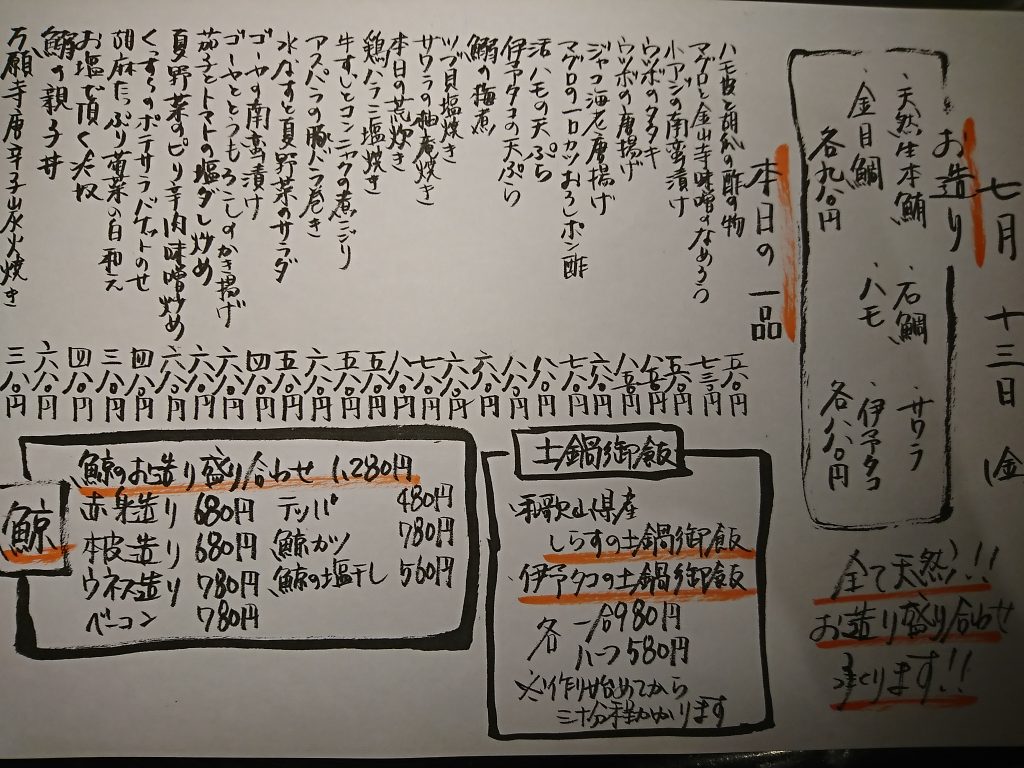 七月 十三日 (金
お造り
・天然生本鮪 ・石鯛 ・サワラ
・金目鯛 ・ハモ ・伊予タコ
各九八〇円 各八八〇円
全て天然!!
お造り盛り合わせ
承ります!!
本日の一品
ハモ皮と胡瓜の酢の物 五八〇円
マグロと金山寺味噌のなめろう 七三〇円
小アジの南蛮漬け 五八〇円
ウツボのタタキ 八五〇円
ウツボの唐揚げ 八五〇円
ジャコ海老唐揚げ 六八〇円
マグロの一口カツおろしポン酢 七八〇円
活ハモの天ぷら 八八〇円
伊予タコの天ぷら 八八〇円
鰯の梅煮 六八〇円
ツブ貝塩焼き 六八〇円
サワラの柚庵焼き 七八〇円
本日の荒炊き 八八〇円
鶏ハラミ塩焼き 五八〇円
牛すじとコンニャクの煮こごり 五八〇円
アスパラの豚バラ巻き 六八〇円
水なすと夏野菜のサラダ 五八〇円
ゴーヤの南蛮漬け 四八〇円
ゴーヤととうもろこしのかき揚げ 六八〇円
茄子とトマトの塩ダレ炒め 六八〇円
夏野菜のピリ辛肉味噌炒め 六八〇円
くずらのポテサラバケットのせ 四八〇円
胡麻たっぷり菊菜の白和え 三八〇円
お塩で頂く冷奴 四八〇円
鮪の親子丼 六八〇円
万願寺唐辛子山水火焼き 三八〇円
土鍋御飯
和歌山県産
しらすの土鍋御飯
伊予タコの土鍋御飯
各 一合980円
ハーフ580円
※作り始めてから
三十分程かかります
鯨
鯨のお造り盛り合わせ 1,280円
赤身造り 680円 テッパ 480円
本皮造り 680円 鯨カツ 780円
ウネス造り 780円 鯨の塩干し 560円
ベーコン 780円